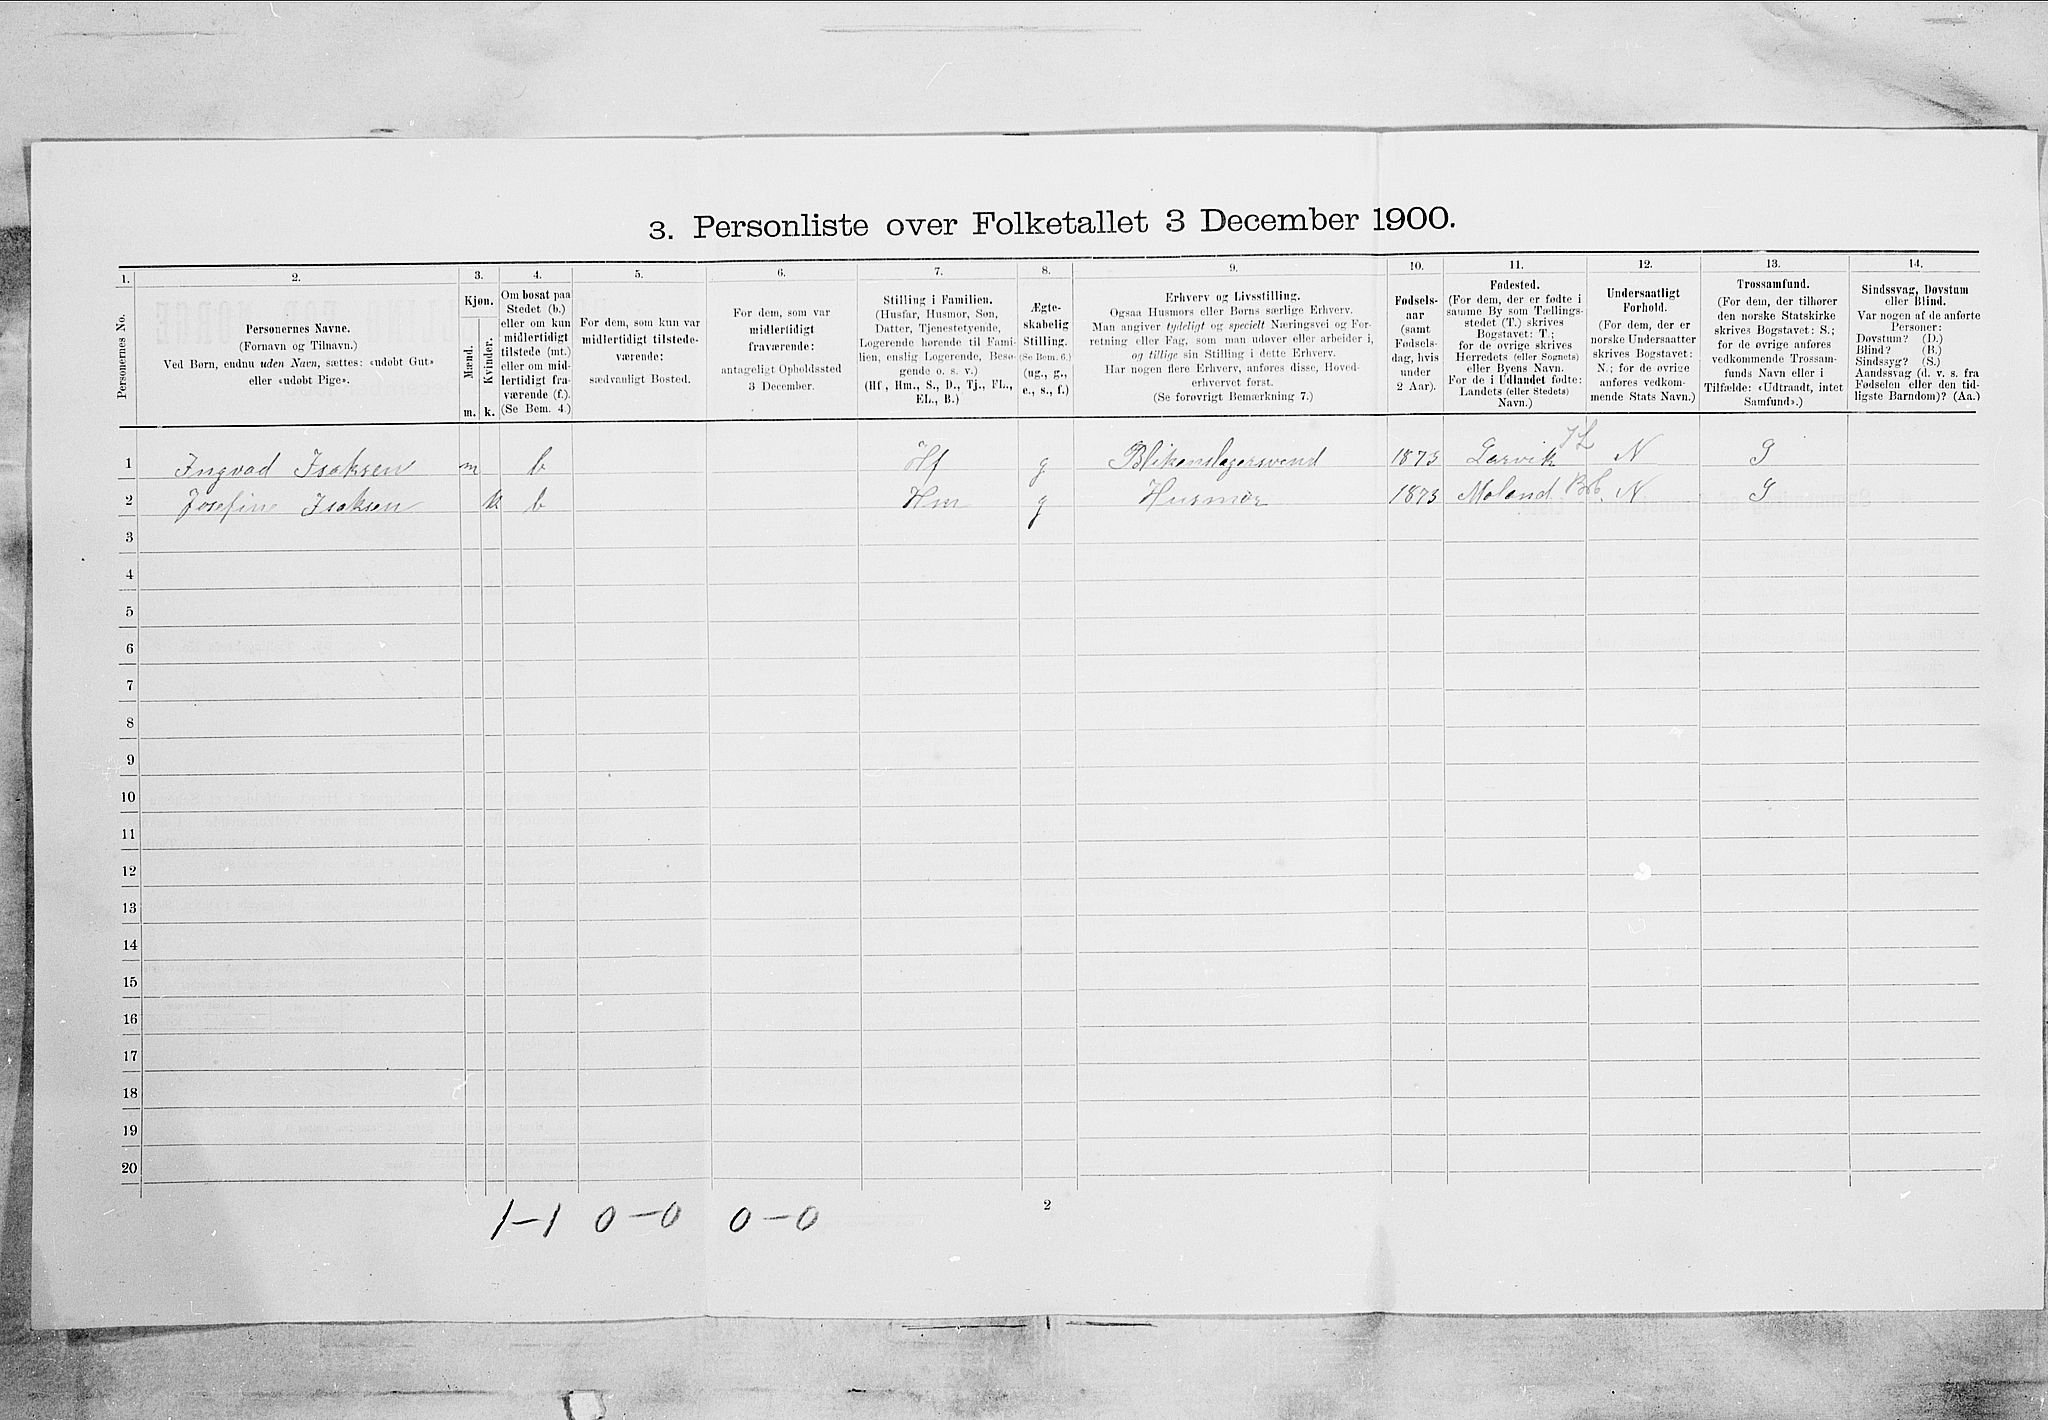 3. Personliste over Folketallet 3 December 1900.
1. 2. 3. 4. 5. 6. 7. 8. 9. 10. 11. 12. 13. 14.
Personernes No.
Personernes Navne.
(Fornavn og Tilnavn.)
Ved Børn, endnu uden Navn, sættes: «udøbt Gut»
eller «udøbt Pige».
Kjøn.
Mænd.
Kvinder.
m. k.
Om bosat paa
Stedet (b.)
eller om kun
midlertidigt
tilstede (mt.)
eller om mid-
lertidigt fra-
værende (f.).
(Se Bem. 4.)
For dem, som kun var
midlertidigt tilstede-
værende:
sædvanligt Bosted.
For dem, som var
midlertidigt
fraværende:
antageligt Opholdssted
3 December.
Stilling i Familien.
(Husfar, Husmor, Søn,
Datter, Tjenestetyende,
Logerende hørende til Fami-
lien, enslig Logerende, Besø-
gende o. s. v.)
(Hf, Hm., S., D., Tj., FL.,
EL., B.)
Ægte-
skabelig
Stilling.
(Se Bem. 6.)
(ug., g.,
e., s., f.)
Erhverv og Livsstilling.
Ogsaa Husmors eller Børns særlige Erhverv.
Man angiver tydeligt og specielt Næringsvei og For-
retning eller Fag, som man udøver eller arbeider i,
og tillige sin Stilling i dette Erhverv.
Har nogen flere Erhverv, anføres disse, Hoved-
erhvervet først.
(Se forøvrigt Bemærkning 7.)
Fødsels-
aar
(samt
Fødsels-
dag, hvis
under
2 Aar).
Fødested.
(For dem, der er fødte i
samme By som Tællings-
stedet (T.) skrives
Bogstavet: T.;
for de øvrige skrives
Herredets (eller Sognets)
eller Byens Navn.
For de i Udlandet fødte:
Landets (eller Stedets)
Navn.)
Undersaatligt
Forhold.
(For dem, der er
norske Undersaatter
skrives Bogstavet:
N.; for de øvrige
anføres vedkom-
mende Stats Navn.)
Trossamfund.
(For dem, der tilhører
den norske Statskirke
skrives Bogstavet: S.;
for de øvrige anføres
vedkommende Trossam-
funds Navn eller i
Tilfælde: «Udtraadt, intet
Samfund».)
Sindssvag, Døvstum
eller Blind.
Var nogen af de anførte
Personer:
Døvstum? (D.)
Blind? (B.)
Sindssyg? (S.)
Aandssvag (d. v. s. fra
Fødselen eller den tid-
ligste Barndom)? (Aa.)
1 Ingvad Isaksen m b Hf g Blikenslagersvend 1873 Larvik N S
2 Josefine Isaksen k b Hm g Husmor 1873 Moland N S
3
4
5
6
7
8
9
10
11
12
13
14
15
16
17
18
19
20
1-1 0-0 0-0
2